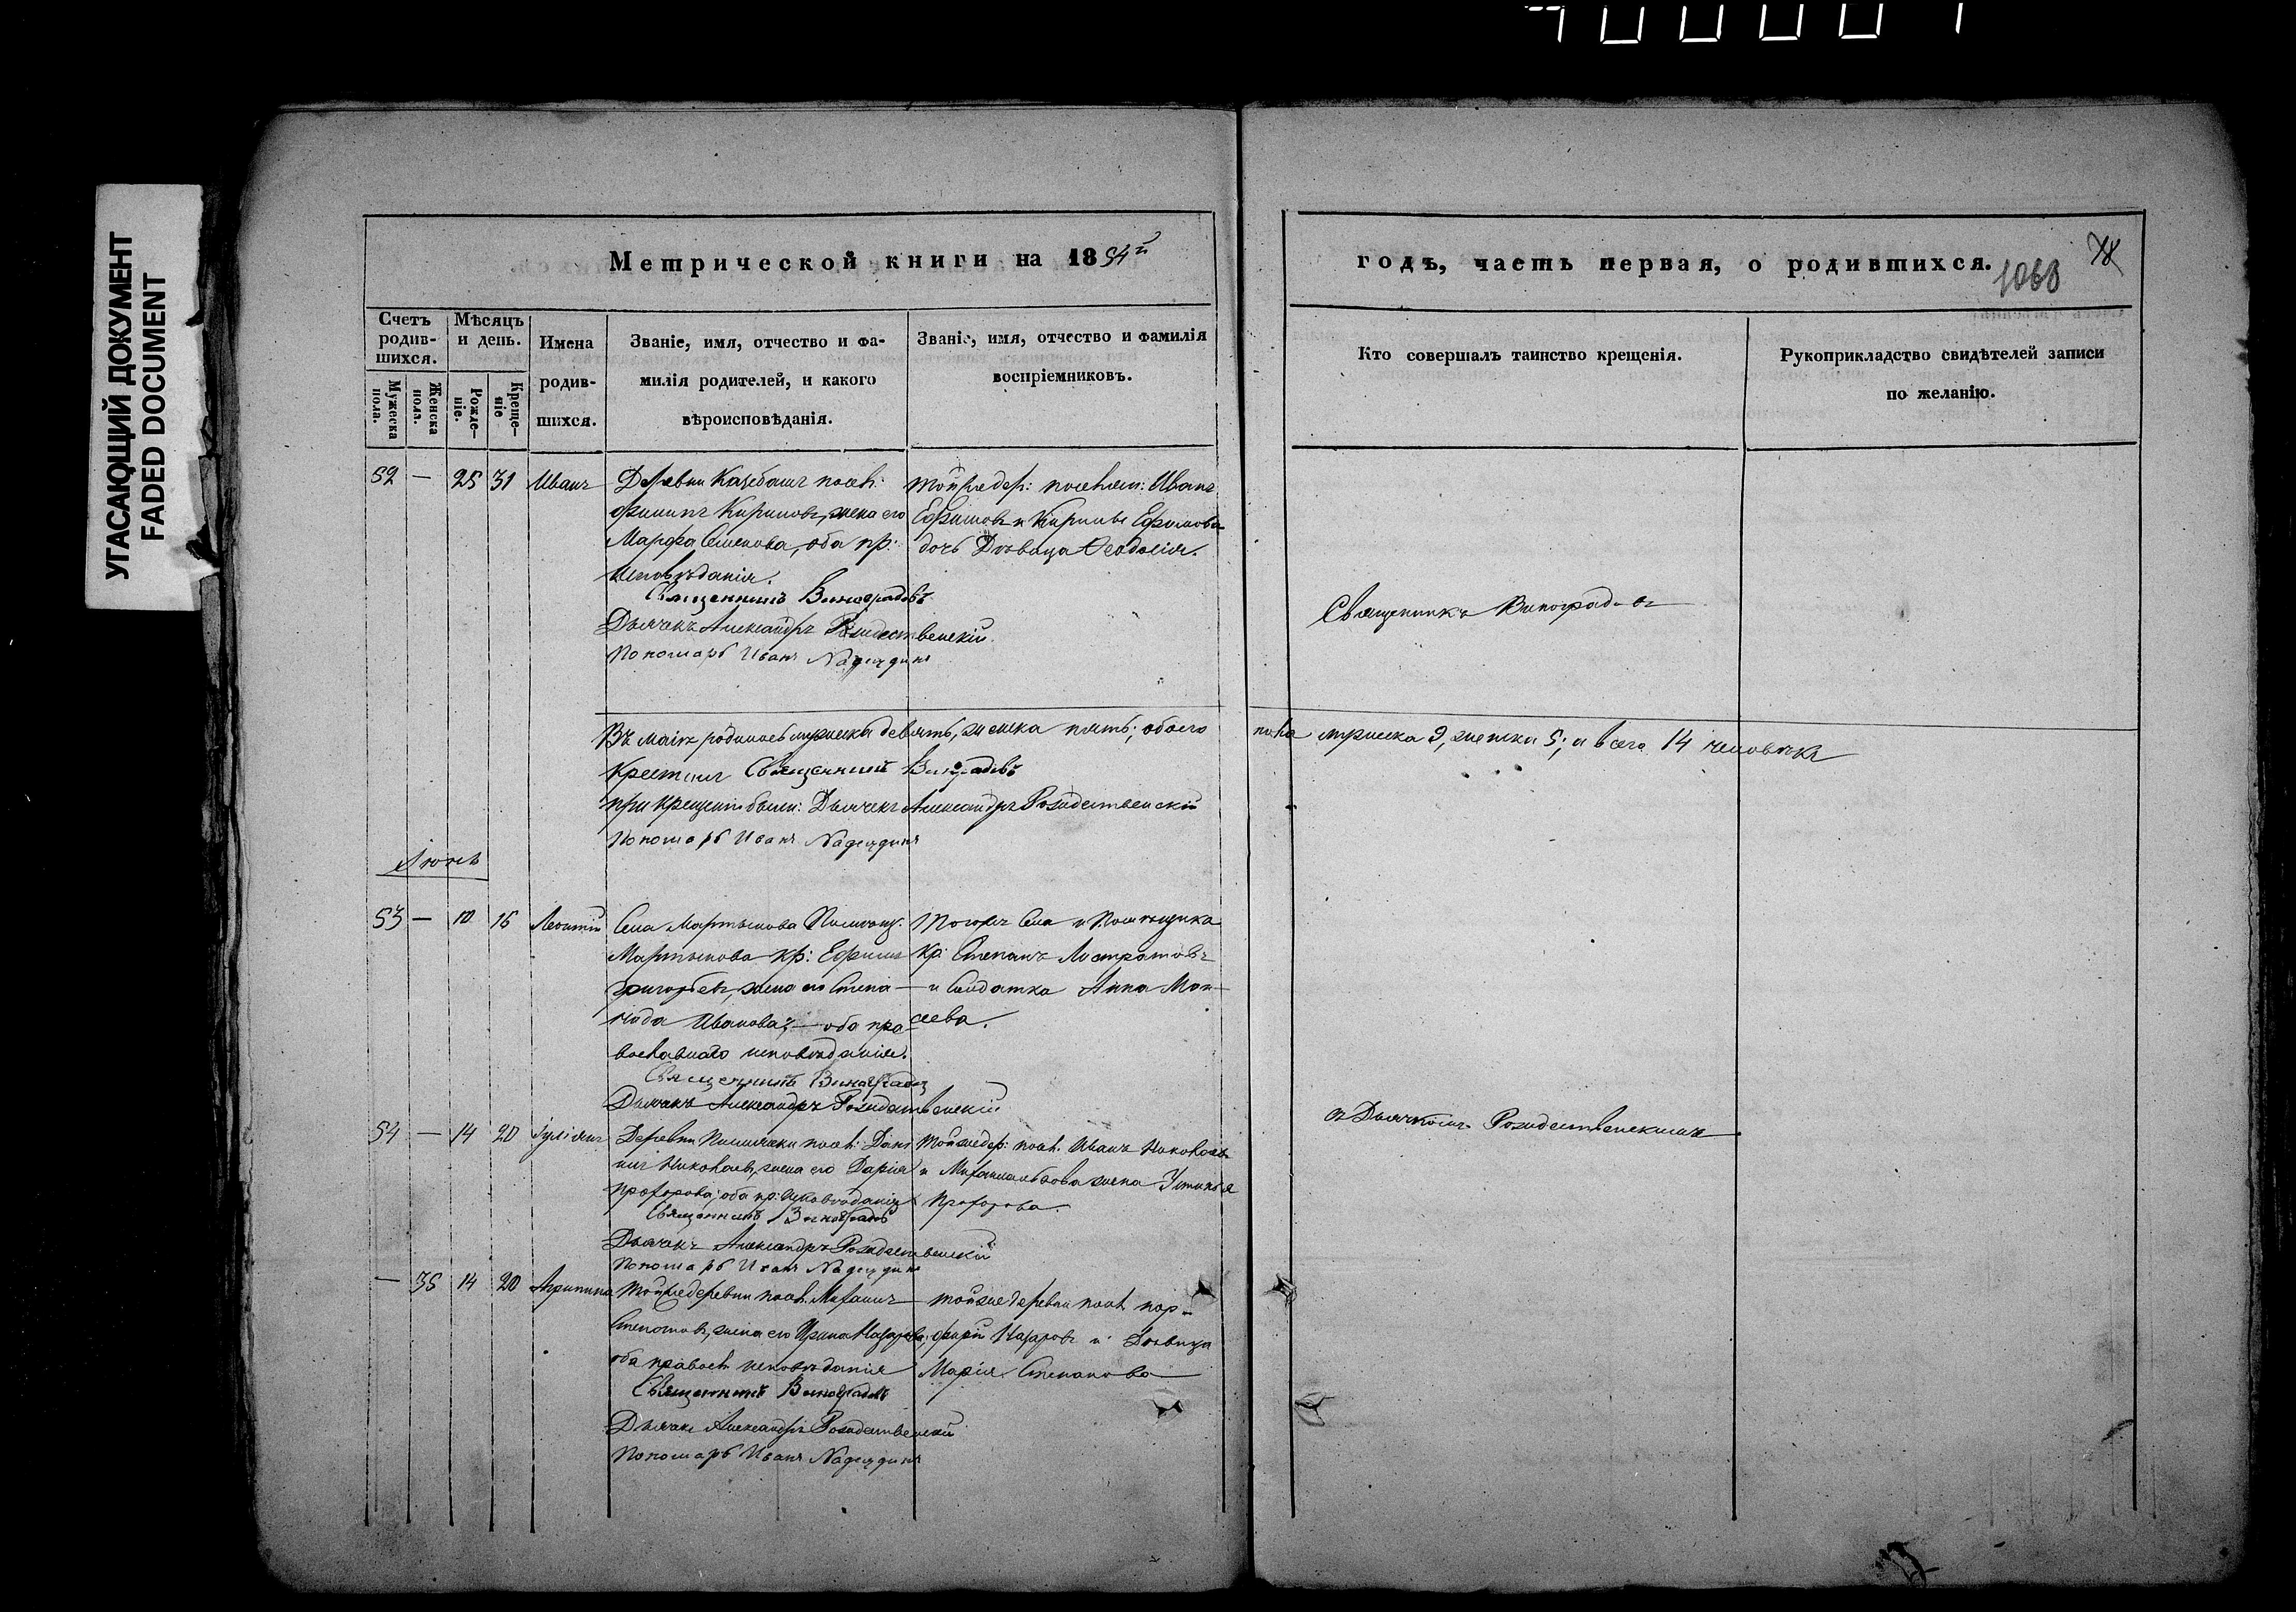 УГАСАЮЩИЙ ДОКУМЕНТ
FADED DOCUMENT
Метрической книги на 1854й
годъ, часть первая, о родившихся.
1068
Счетъ родившихся.
Мѣсяцъ и день.
Имена родившихся.
Званіе, имя, отчество и фамилія родителей, и какого вѣроисповѣданія.
Званіе, имя, отчество и фамилія воспріемниковъ.
Кто совершалъ таинство крещенія.
Рукоприкладство свидѣтелей записи по желанію.
Мужеска пола.
Женска пола.
Рожденіе.
Крещеніе
52 — 25 31 Иванъ
Деревни посел:
Филипъ Кириловъ, жена его
Марфа Семенова, оба пр:
исповѣданія.
Священникъ Виноградовъ
Дьячекъ Александръ Рождественскій
Пономарь Иванъ Надеждинъ
Тойже дер: поселян: Иванъ
Ефимовъ и Ефимова
дочь Дѣвица Ѳеодосія.
Священникъ Виноградовъ
Въ маіѣ родилось мужеска девять, женска пять; обоего
пола мужеска 9, женска 5; а всего 14 человѣкъ
Крестилъ Священникъ Виноградовъ
при крещеніи были: Дьячекъ Александръ Рождественскій
Пономарь Иванъ Надеждинъ
Іюнь
53 — 10 16 Леонтій
Села Мартынова Помѣщ:
Мартынова кр: Ефимъ
Григорьевъ, жена его Степанида Иванова, — оба православнаго исповѣданія.
Священникъ Виноградовъ
Дьячекъ Александръ Рождественскій
Тогоже Села и Помѣщика
кр: Степанъ
и Солдатка Анна
54 — 14 20 Іуліанъ
Деревни посел: Даніилъ Николаевъ, жена его Дарія
Прохорова; оба пр: исповѣданія
Священникъ Виноградовъ
Дьячекъ Александръ Рождественскій
Пономарь Иванъ Надеждинъ
Тойже дер: посел. Иванъ
и жена Устинья
Прохорова.
съ Дьячкомъ Рождественскимъ
— 35 14 20 Агрипина
Тойже деревни посел. Михаилъ
Степановъ, жена его Ирина Назарова;
оба правосл. исповѣданія
Священникъ Виноградовъ
Дьячекъ Александръ Рождественскій
Пономарь Иванъ Надеждинъ
тойже деревни посел. Порфирій Назаровъ и Дѣвица
Марія Степанова